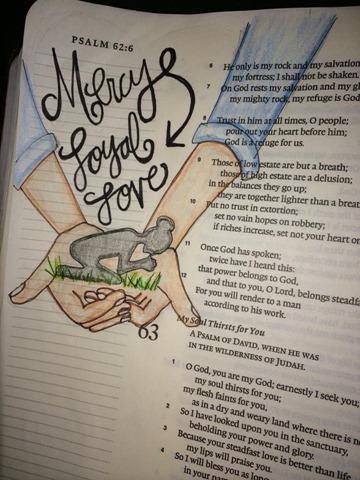 PSALM 62:6
Mercy &
Loyal
Love
6 He only is my rock and my salvation
my fortress; I shall not be shaken.
7 On God rests my salvation and my gl
my mighty rock, my refuge is God
8 Trust in him at all times, O people;
pour out your heart before him;
God is a refuge for us.
9 Those of low estate are but a breath;
those of high estate are a delusion;
in the balances they go up;
they are together lighter than a breat
10 Put no trust in extortion;
set no vain hopes on robbery;
if riches increase, set not your heart on
11 Once God has spoken;
twice have I heard this:
that power belongs to God,
12 and that to you, O Lord, belongs steadfa
For you will render to a man
according to his work.
63
My Soul Thirsts for You
A PSALM OF DAVID, WHEN HE WAS
IN THE WILDERNESS OF JUDAH.
1 O God, you are my God; earnestly I seek you;
my soul thirsts for you;
my flesh faints for you,
as in a dry and weary land where there is no
2 So I have looked upon you in the sanctuary,
beholding your power and glory.
3 Because your steadfast love is better than life
my lips will praise you.
4 So I will bless you as long
in your name